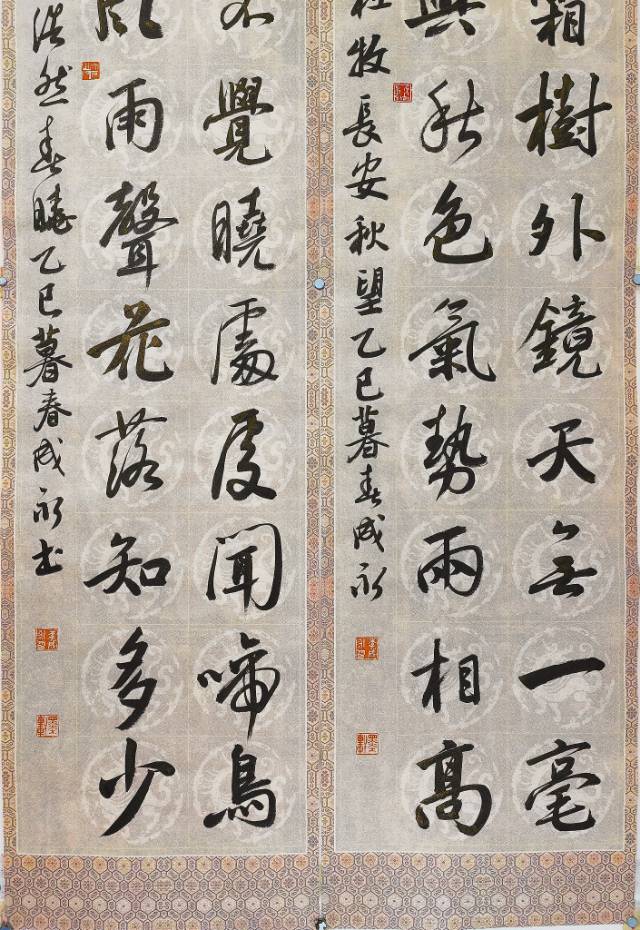 霜樹外鏡天無一毫
與秋色氣勢兩相高
杜牧長安秋望乙巳暮春成永
不覺曉處處聞啼鳥
風雨聲花落知多少
浩然春曉乙巳暮春成永书